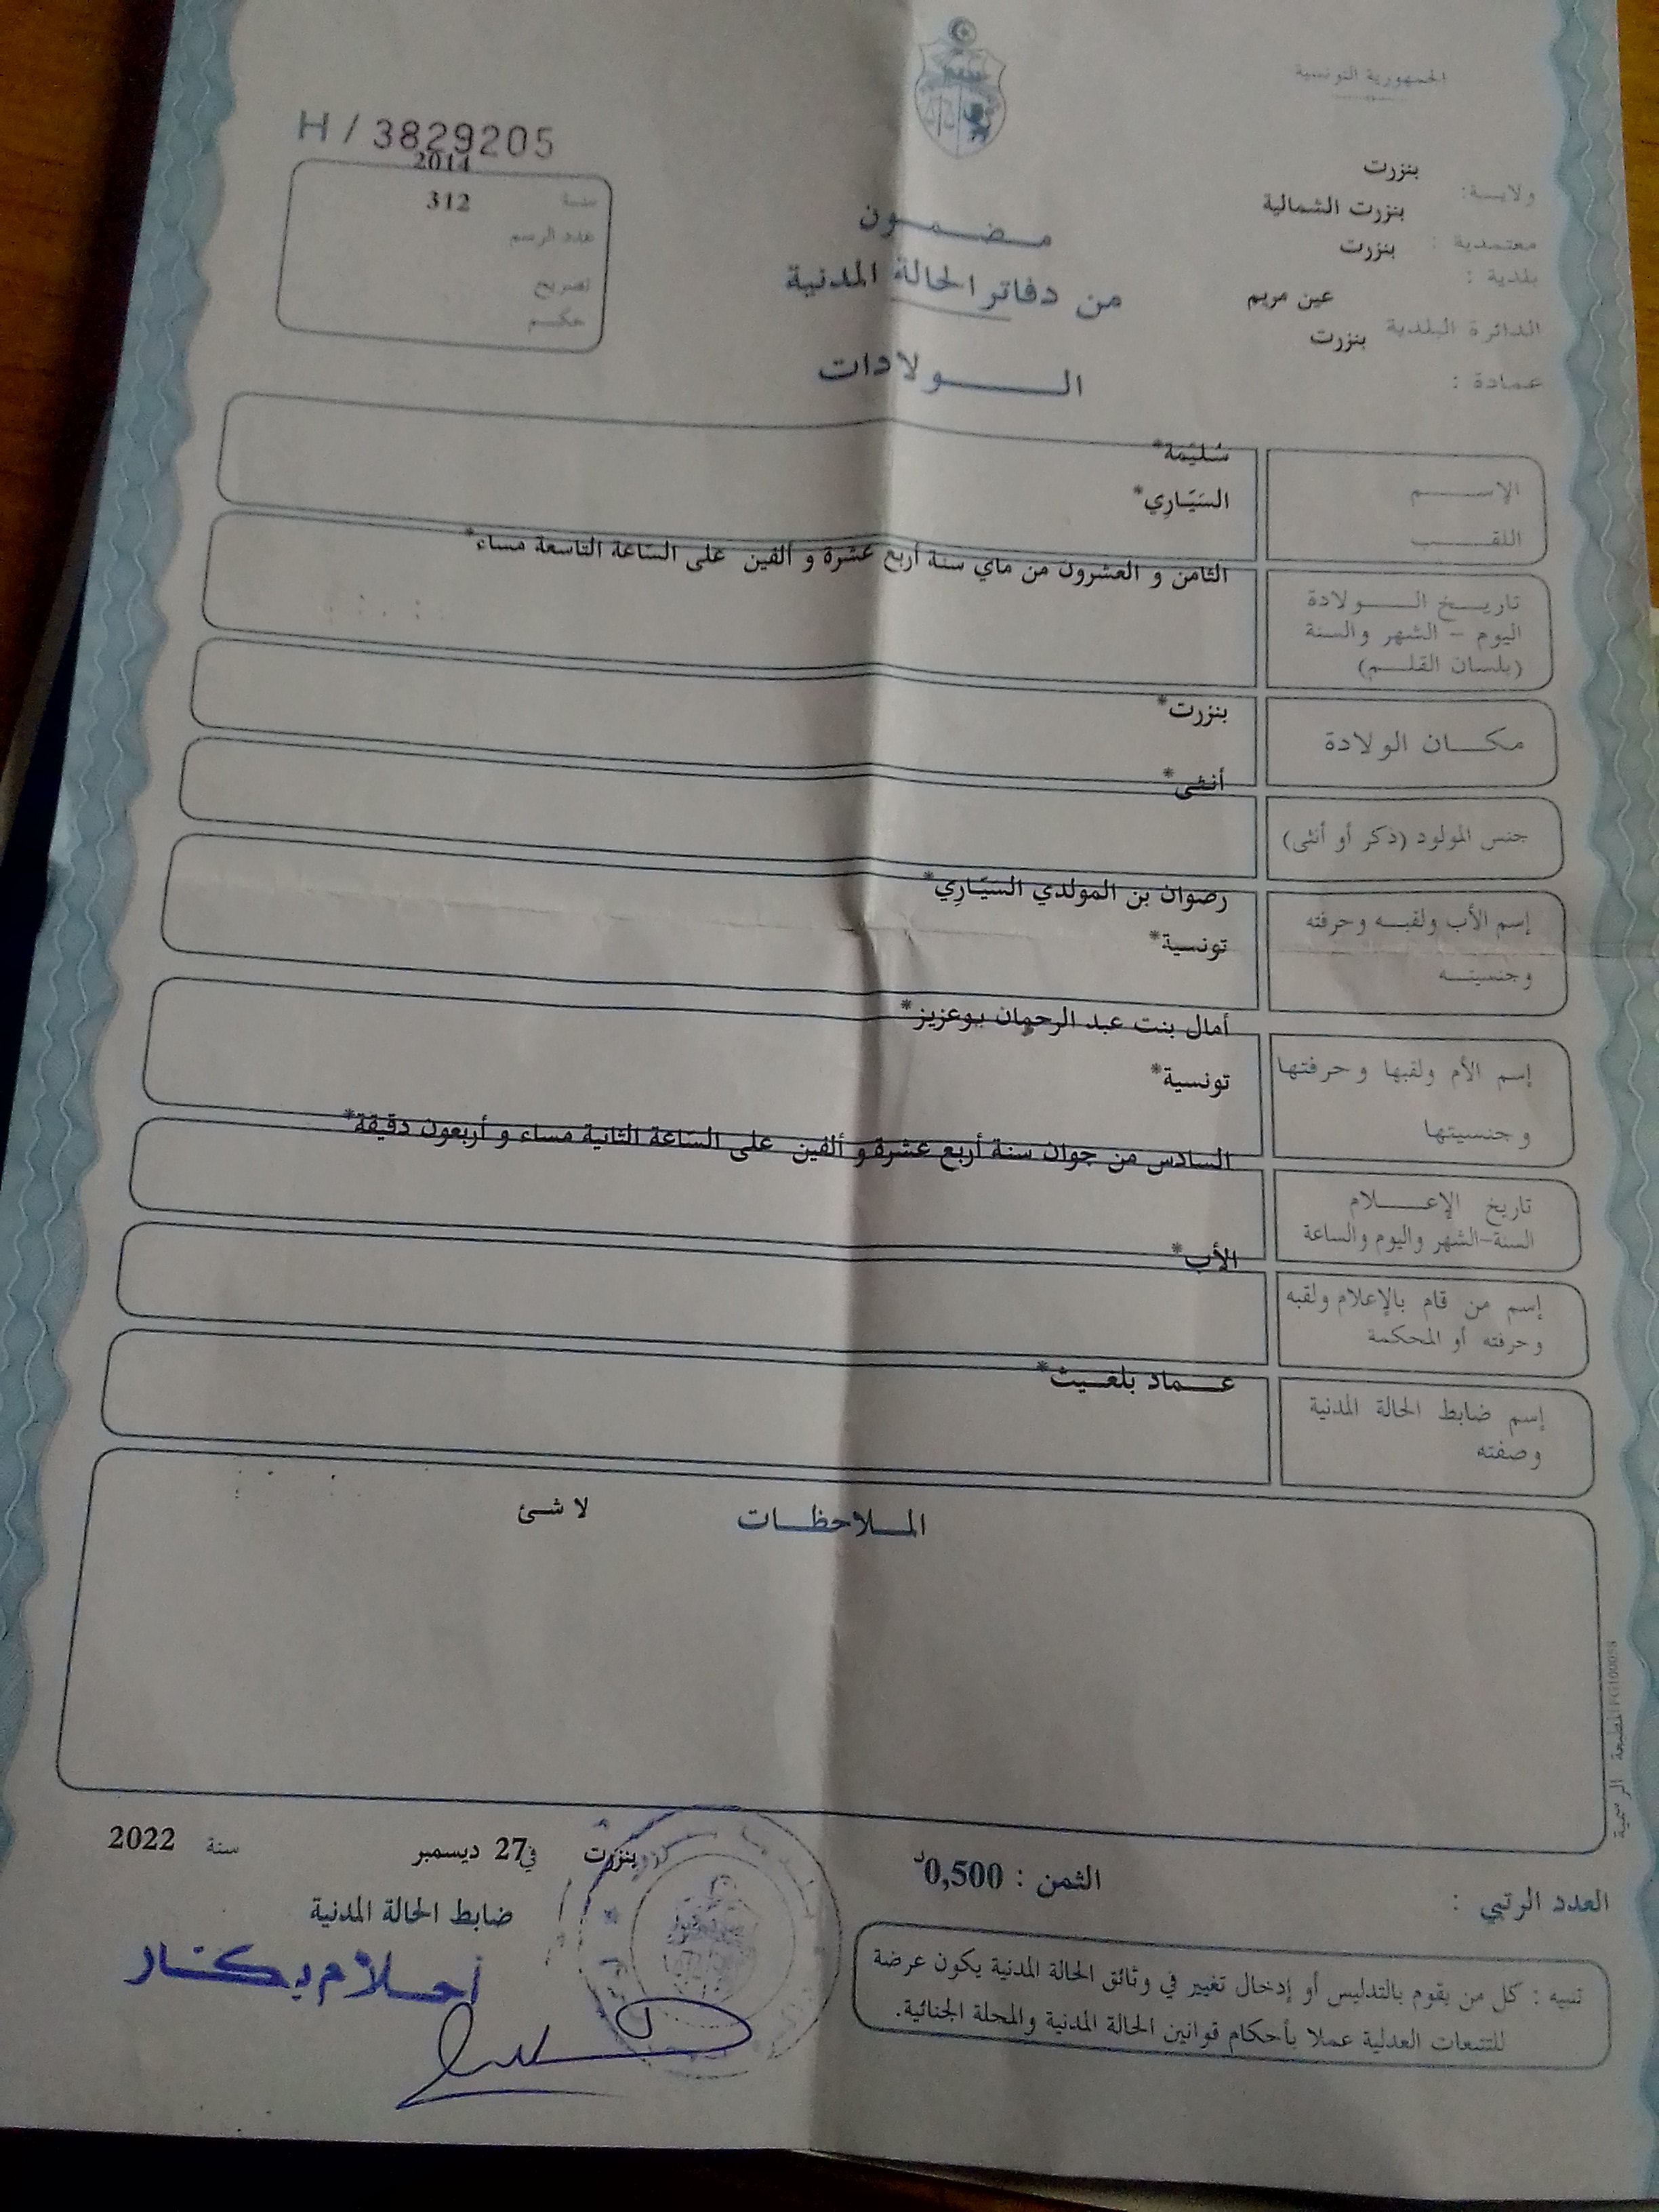 الجمهورية التونسية
H / 3829205
ولايــة: بنزرت
معتمدية : بنزرت الشمالية
بلدية : بنزرت
الدائرة البلدية عين مريم
عمادة : بنزرت
2014
سنة 312
عدد الرسم
تصريح
حكم
مضمون
من دفاتر الحالة المدنية
الولادات
الإسم سُليّمَة*
اللقب السَيّارِي*
تاريخ الولادة
اليوم - الشهر والسنة
(بلسان القلم)
الثامن و العشرون من ماي سنة أربع عشرة و ألفين على الساعة التاسعة مساء*
مكان الولادة بنزرت*
جنس المولود (ذكر أو أنثى) أنثى*
إسم الأب ولقبه وحرفته رضوان بن المولدي السَيّارِي*
وجنسيته تونسية*
إسم الأم ولقبها وحرفتها أمال بنت عبد الرحمان بوعزيز*
وجنسيتها تونسية*
تاريخ الإعلام
السنة-الشهر واليوم والساعة
السادس من جوان سنة أربع عشرة و ألفين على الساعة الثانية مساء و أربعون دقيقة*
إسم من قام بالإعلام ولقبه
وحرفته أو المحكمة
الأب*
إسم ضابط الحالة المدنية
وصفته
عماد بلغيث*
الملاحظات لا شئ
المطبعة الرسمية
بنزرت في 27 ديسمبر سنة 2022
ضابط الحالة المدنية
أحلام بكار
الثمن : 0,500د
العدد الرتبي :
تنبيه : كل من يقوم بالتدليس أو إدخال تغيير في وثائق الحالة المدنية يكون عرضة
للتتبعات العدلية عملا بأحكام قوانين الحالة المدنية والمجلة الجنائية.